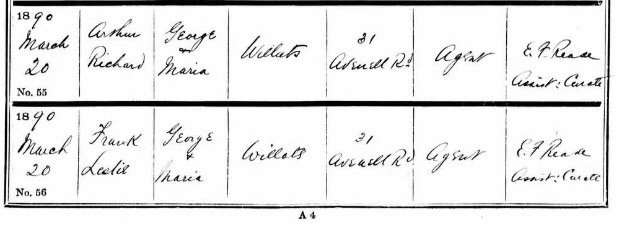 1890
March
20
No. 55
Arthur
Richard
George
&
Maria
Willats
31
Avenell Rd
Agent
E. F. Reade
Assist: Curate
1890
March
20
No. 56
Frank
Leslie
George
&
Maria
Willats
31
Avenell Rd
Agent
E. F. Reade
Assist: Curate
A 4